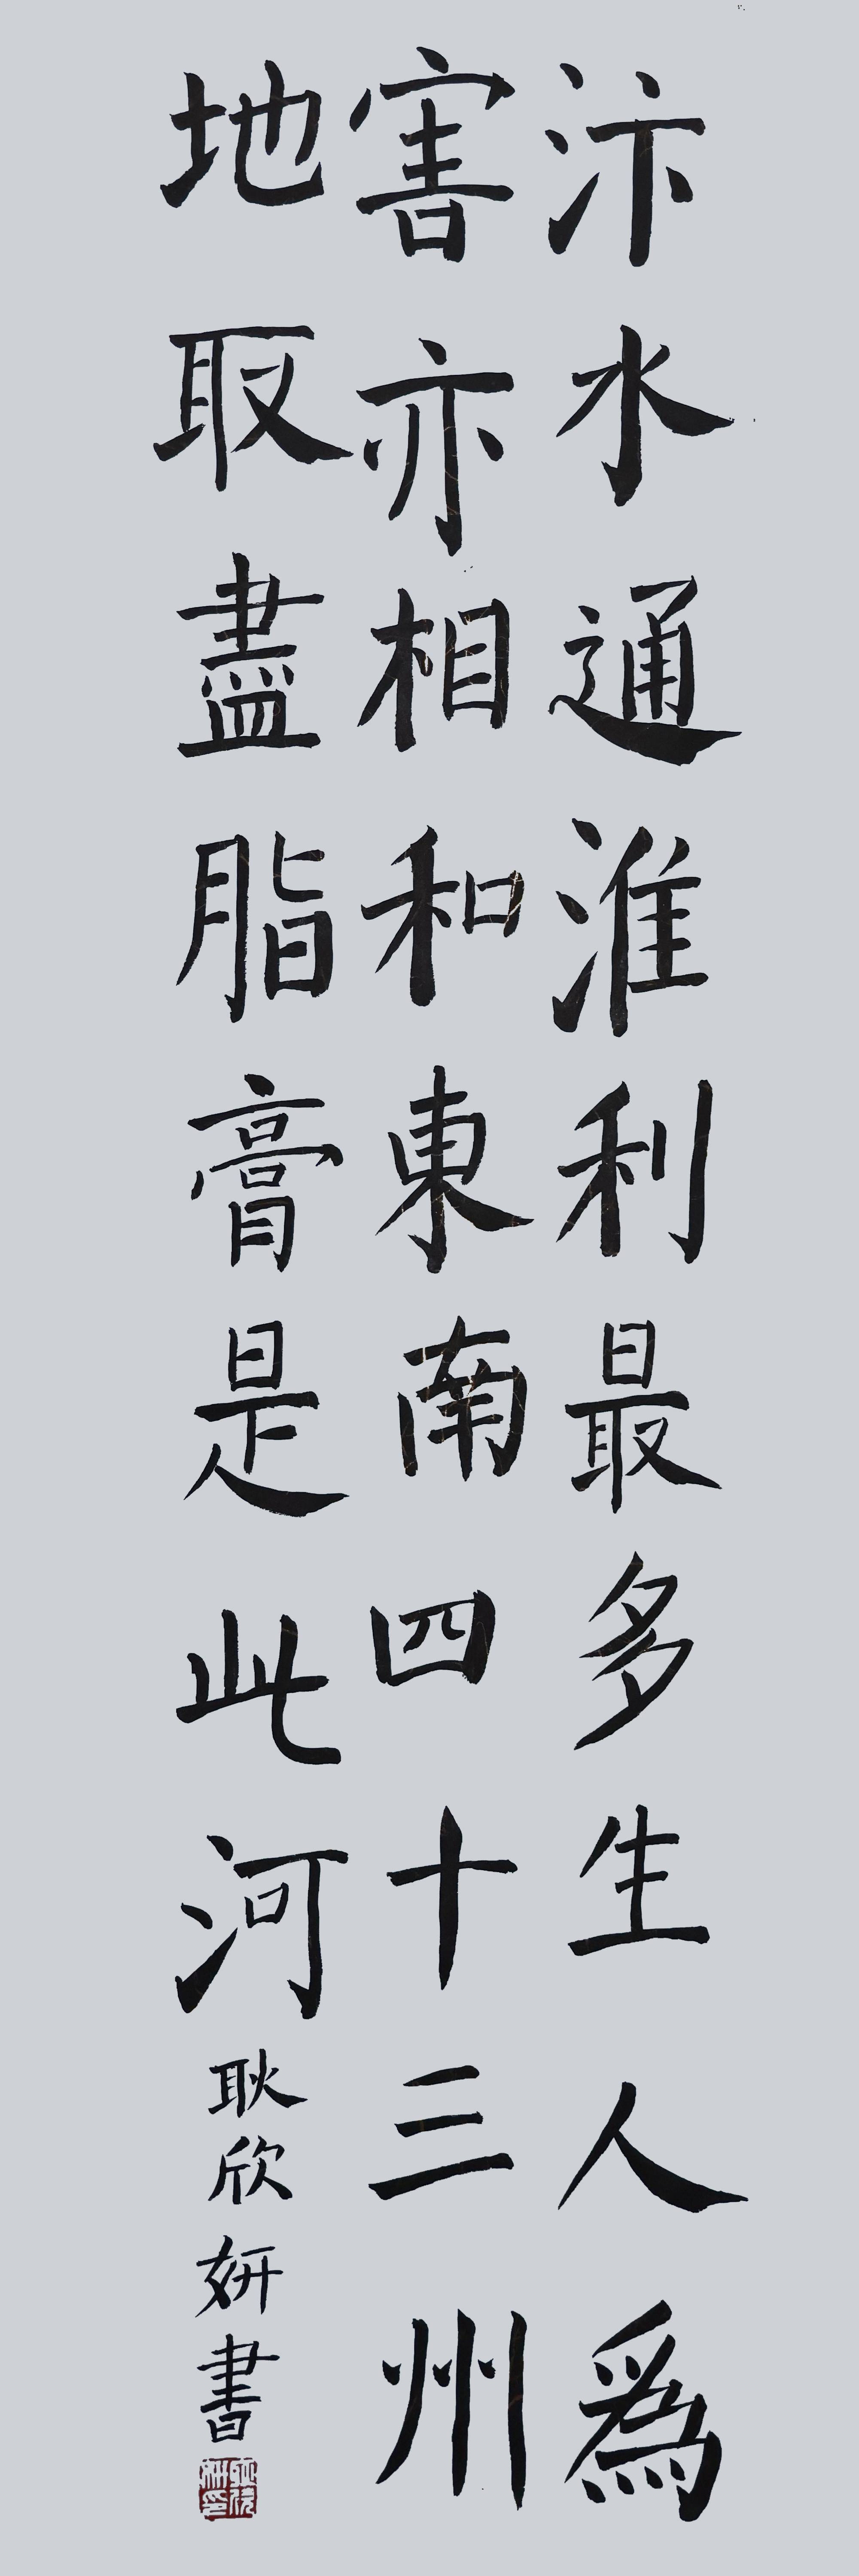 汴水通淮利最多生人為
害亦相和東南四十三州
地取盡脂膏是此河
耿欣妍書